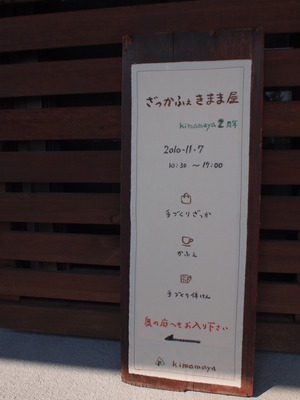 ざっかふぇ きまま屋
kimamaya 2周年
2010・11・7
10:30 〜 17:00
手づくりざっか
かふぇ
手づくり石けん
奥の店へもお入り下さい
kimamaya